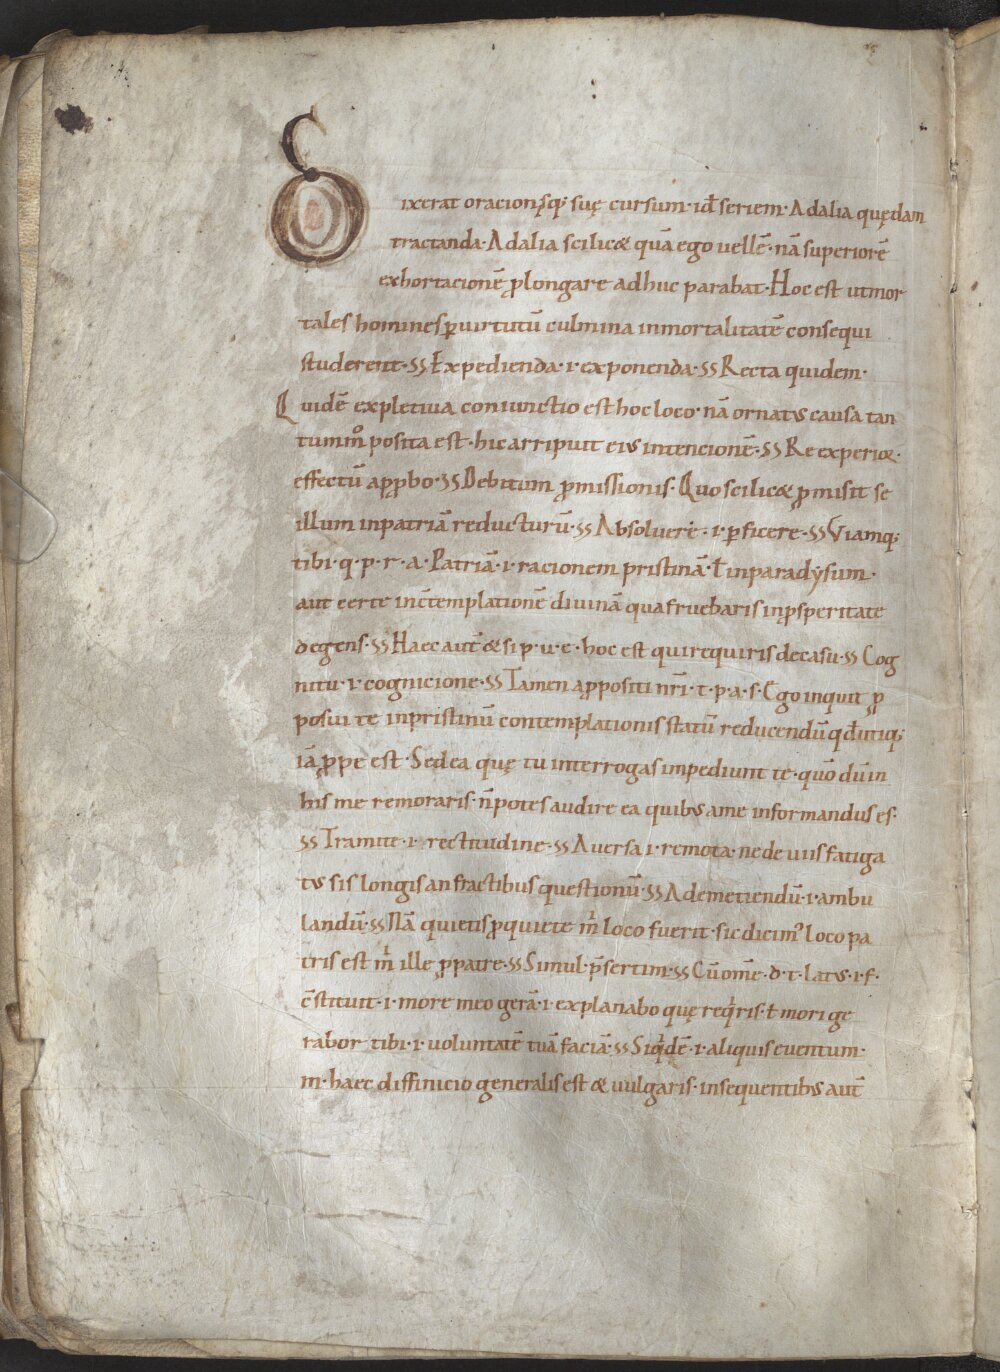 Dixerat oracionisq; suę cursum · id̄ seriem · Ad alia quędam
tractanda · Ad alia scilicet quā ego vellē · nā superiorē
exhortacionē ꝓlongare adhuc parabat · Hoc est ut mor
tales homines ꝑ uirtutū culmina inmortalitatē consequi
studerent · Expedienda · i · exponenda · Recta quidem ·
Quidē expletiua coniunctio est hoc loco · nā ornatus causa tan
tummͦ posita est · hic arripuit eius intencionē · Re experior ·
effectū apꝓbo · Debitum ꝓmissionis · Quo scilicet ꝓmisit se
illum in patriā reducturū · Absoluere · i · ꝑficere · Viamq;
tibi · q · p · r · a · Patriā · i · racionem pristinā · ł in paradẏsum ·
aut certe in c̄templationē diuinā qua fruebaris in ꝓsperitate
degens · Haec aut̄ & si p · u · e · hoc est qui requiris de casu · Cog
nitu · i · cognicione · Tamen a ꝓpositi nr̄i · t · p · a · s · Ego inquit ꝓ
posui te in pristinū contemplationis statū reducendū qd̄ utiq;
iā ꝓpe est · Sed ea quę tu interrogas impediunt te · quō dū in
his me remoraris · n̄ potes audire ea quibus a me informandus es ·
Tramite · i · rectitudine · Auersa · i · remota · ne deuiis fatiga
tus sis longis anfractibus questionū · Ad emetiendū · i · ambu
landū · Nā quietis ꝓ quiete m̄ loco fuerit · sic dicim' loco pa
tris est m̄ ille ꝓ patre · Simul · p̄sertim · Cū om̄e · d · t · latus · i · f ·
c̄stituit · i · more meo gerā · i · explanabo quę reqͥris · ł morige
rabor tibi · i · uoluntatē tuā faciā · Siqͥdē · i · aliquis euentum ·
m · haec diffinicio generalis est & uulgaris · in sequentibus aut̄